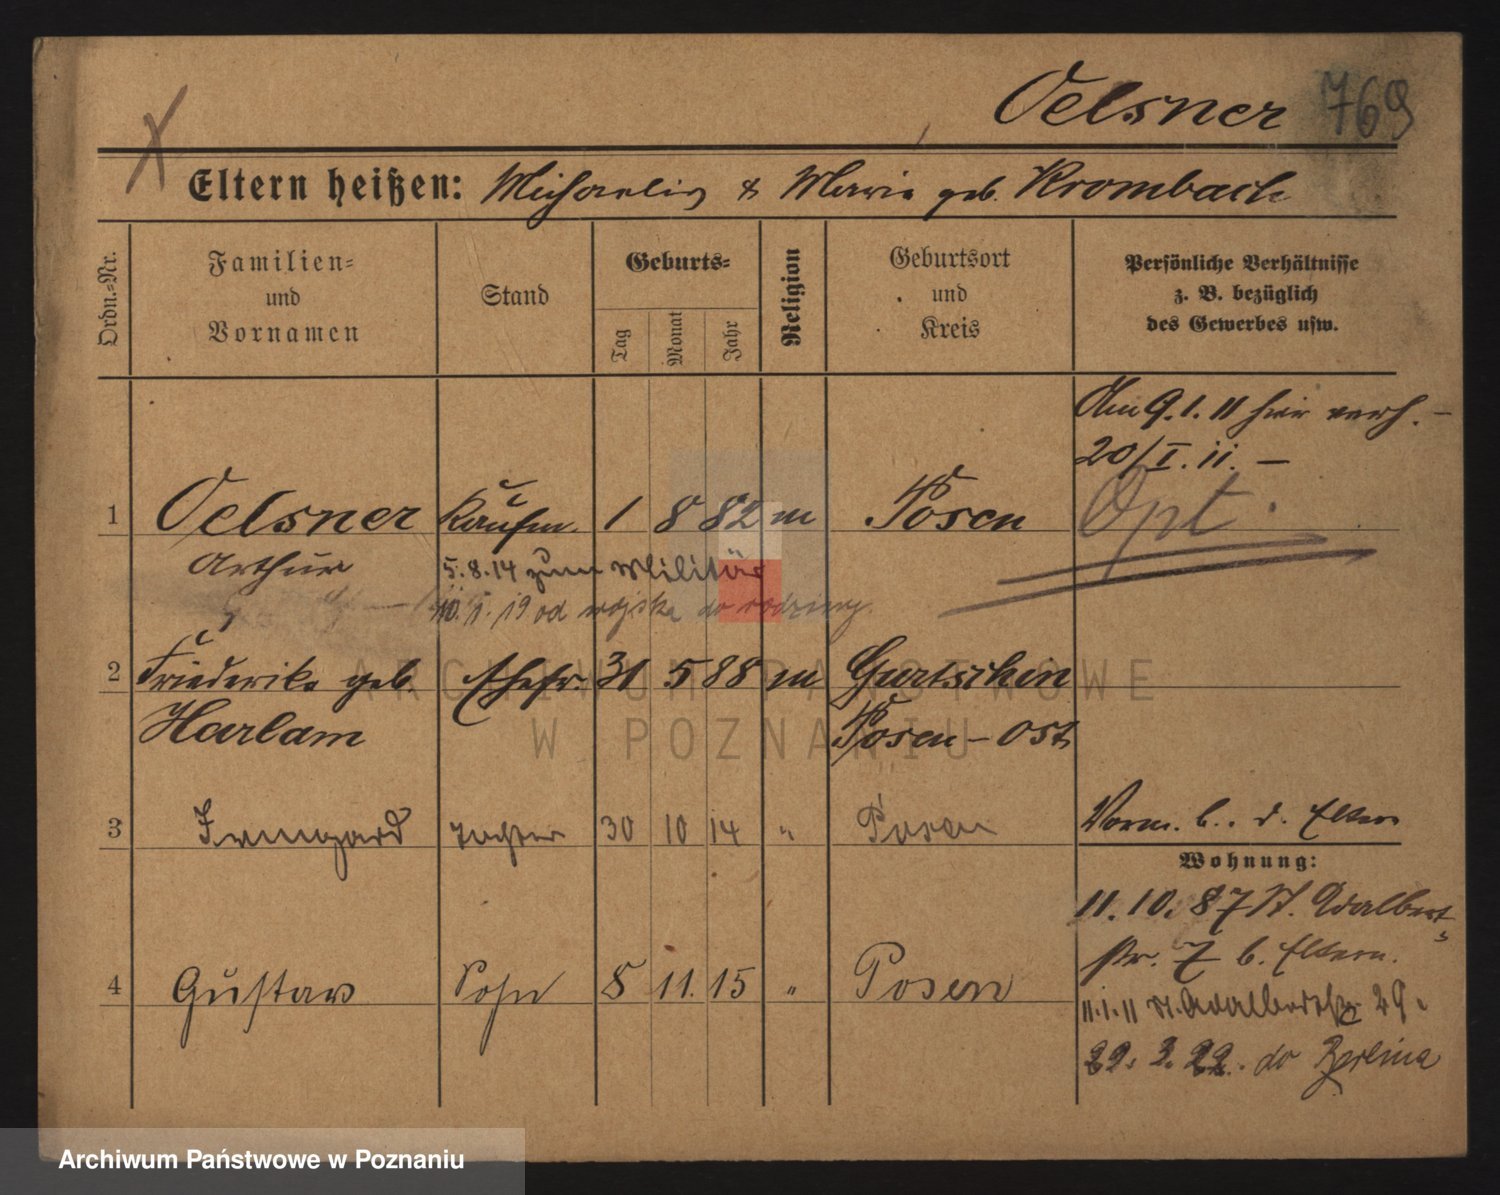 Oelsner 769
Eltern heißen: Michaelis & Marie geb. Krombach
Ordn.=Nr.
Familien=
und
Vornamen
Stand
Geburts=
Tag
Monat
Jahr
Religion
Geburtsort
und
Kreis
Persönliche Verhältnisse
z. B. bezüglich
des Gewerbes usw.
Am 9.1.11 hier verh. –
20/I. 11. –
1 Oelsner Kaufm. 1 8 82 m Posen Opt.
Arthur 5.8.14 zum Militär
10.1.19 od wojska do rodziny
2 Friederike geb. Ehefr. 31 5 88 m Gurtschin
Harlam Posen – Ost
3 Irmgard Tochter 30 10 14 " Posen Vorm. b. d. Eltern
Wohnung:
11.10.87 St. Adalbert-
str. 7 b. Eltern.
4 Gustav Sohn 8 11. 15 " Posen
11.1.11 St. Adalbertstr. 29.
22. 2. 22. do Berlina
ARCHIWUM PAŃSTWOWE
W POZNANIU
Archiwum Państwowe w Poznaniu